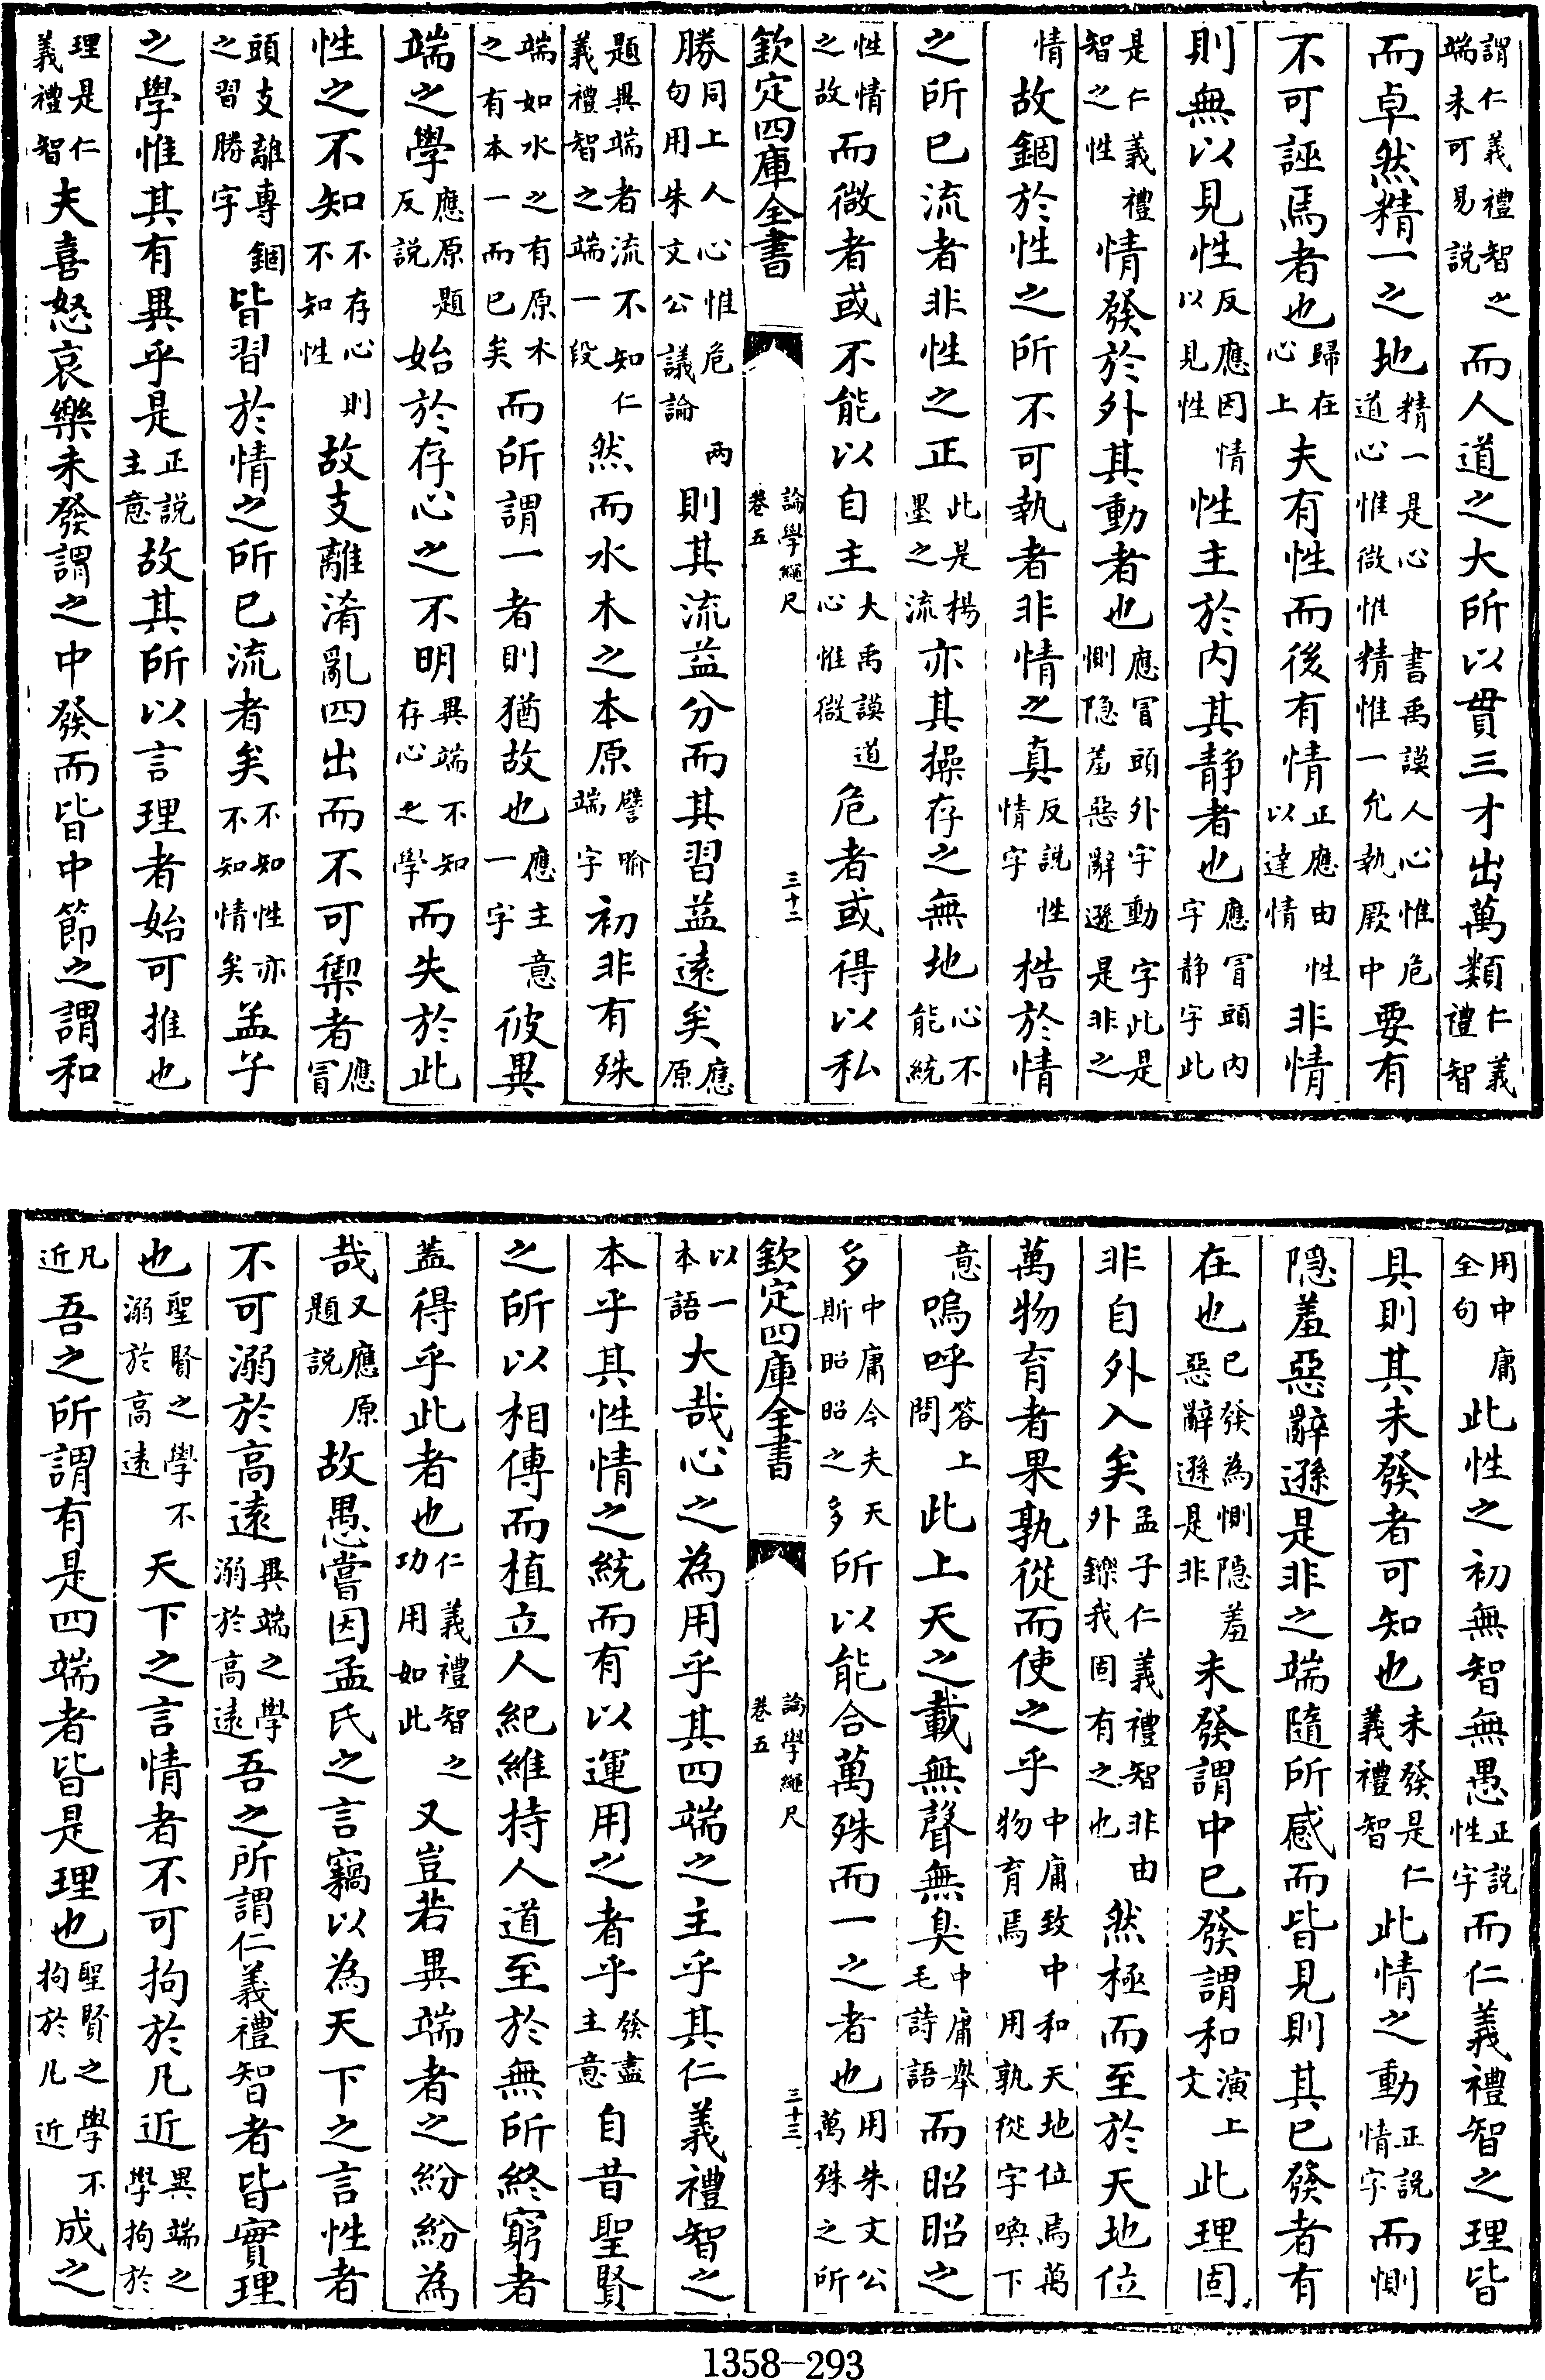 謂仁義禮智之端未可見説而人道之大所以貫三才出萬類仁義禮智
而卓然精一之地精一是心書禹謨人心惟危道心惟微惟精惟一允執厥中要有
不可誣焉者也歸在心上夫有性而後有情正應由性以達情非情
則無以見性反應因情以見性性主於内其静者也應冒頭内字静字此
是仁義禮智之性情發於外其動者也應冒頭外字動字此是惻隐羞惡辭遜是非之
情故錮於性之所不可執者非情之真反説性情字梏於情
之所已流者非性之正此是楊墨之流亦其操存之無地心不能統
性情之故而微者或不能以自主大禹謨道心惟微危者或得以私
欽定四庫全書
論學繩尺
卷五
三十二
勝同上人心惟危兩句用朱文公議論則其流益分而其習益遠矣應原
題異端者流不知仁義禮智之端一段然而水木之本原譬喻端字初非有殊
端如水之有原木之有本一而已矣而所謂一者則猶故也應主意一字彼異
端之學應原題反説始於存心之不明異端不知存心之學而失於此
性之不知不存心則不知性故支離淆亂四出而不可禦者應冒
頭支離專錮之習勝字皆習於情之所已流者矣不知性亦不知情矣孟子
之學惟其有異乎是正説主意故其所以言理者始可推也
理是仁義禮智夫喜怒哀樂未發謂之中發而皆中節之謂和
用中庸全句此性之初無智無愚正説性字而仁義禮智之理皆
具則其未發者可知也未發是仁義禮智此情之動正説情字而惻
隠羞惡辭遜是非之端隨所感而皆見則其已發者有
在也已發為惻隠羞惡辭遜是非未發謂中已發謂和演上文此理固
非自外入矣孟子仁義禮智非由外鑠我固有之也然極而至於天地位
萬物育者果孰從而使之乎中庸致中和天地位焉萬物育焉用孰從字喚下
意嗚呼答上問此上天之載無聲無臭中庸舉毛詩語而昭昭之
多中庸今夫天斯昭昭之多所以能合萬殊而一之者也用朱文公萬殊之所
欽定四庫全書
論學繩尺
卷五
三十三
以一本語大哉心之為用乎其四端之主乎其仁義禮智之
本乎其性情之統而有以運用之者乎發盡主意自昔聖賢
之所以相傳而植立人紀維持人道至於無所終窮者
蓋得乎此者也仁義禮智之功用如此又豈若異端者之紛紛為
哉又應原題説故愚嘗因孟氏之言竊以為天下之言性者
不可溺於高遠異端之學溺於高遠吾之所謂仁義禮智者皆實理
也聖賢之學不溺於高遠天下之言情者不可拘於凡近異端之學拘於
凡近吾之所謂有是四端者皆是理也聖賢之學不拘於凡近成之
1358—293